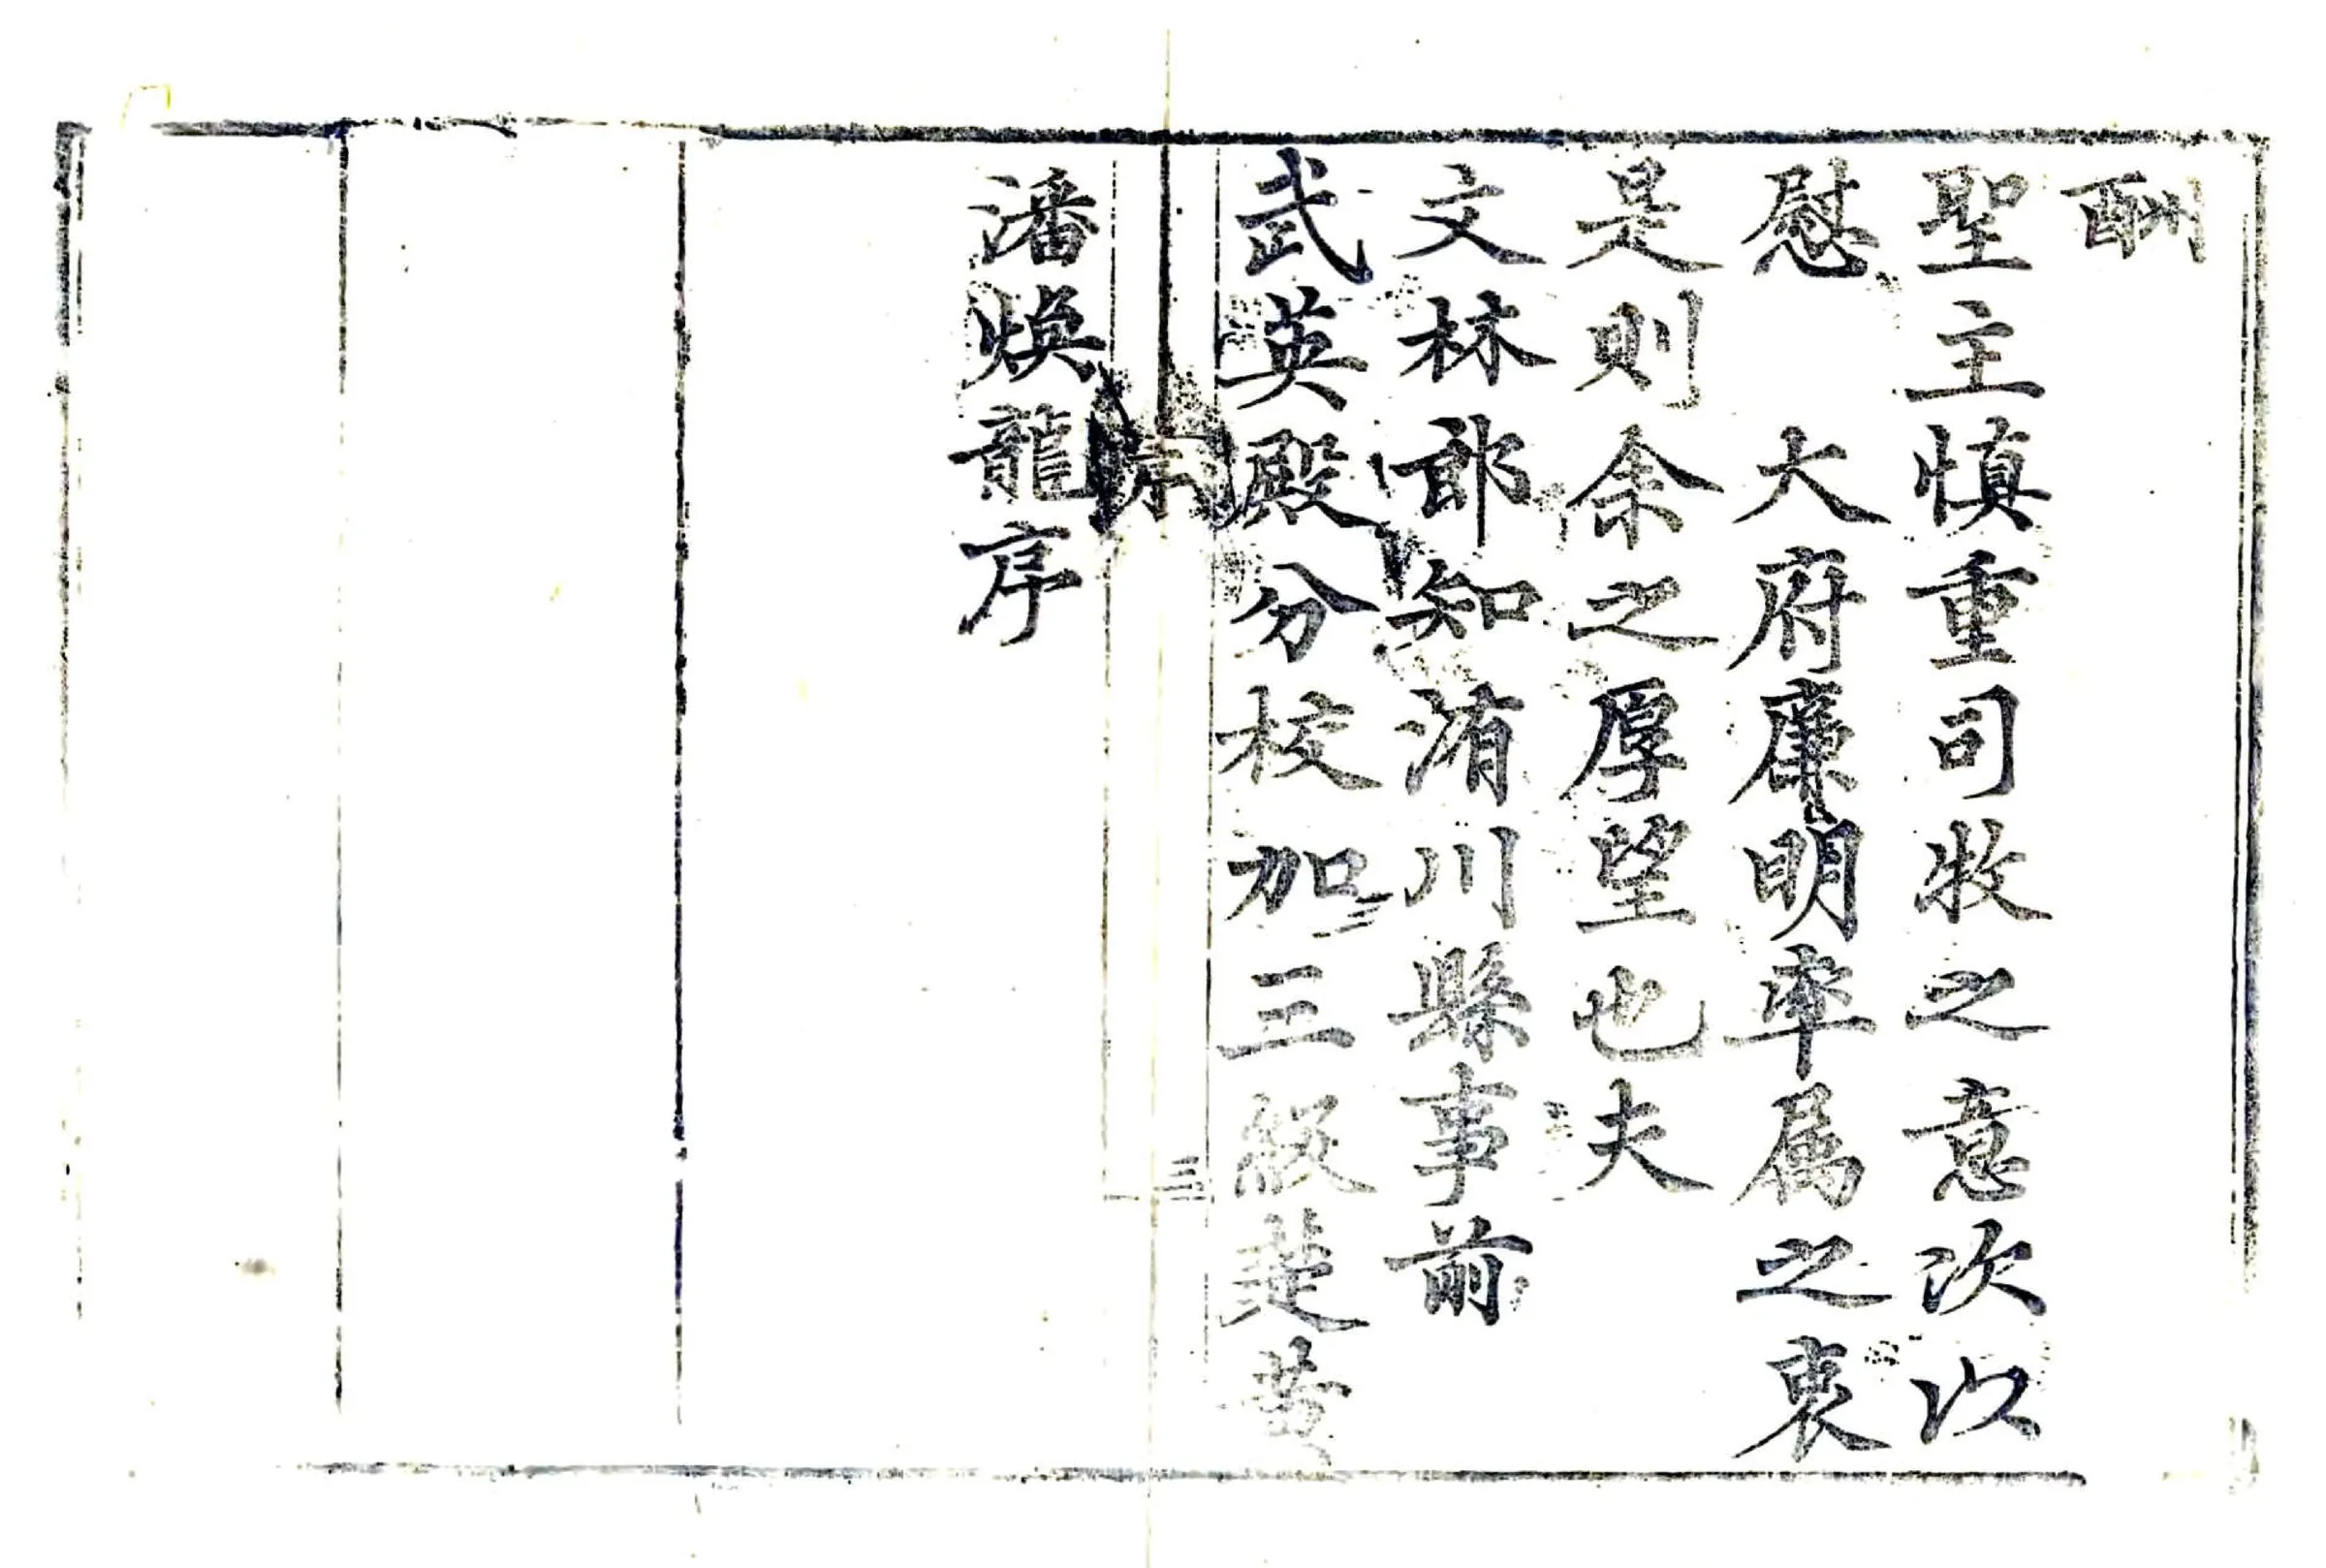 酬
聖主慎重司牧之意次以
慰　大府廉明率属之衷
是則余之厚望也夫
文林郎知洧川縣事前
武英殿分校加三級楚黄
三
潘煥龍序